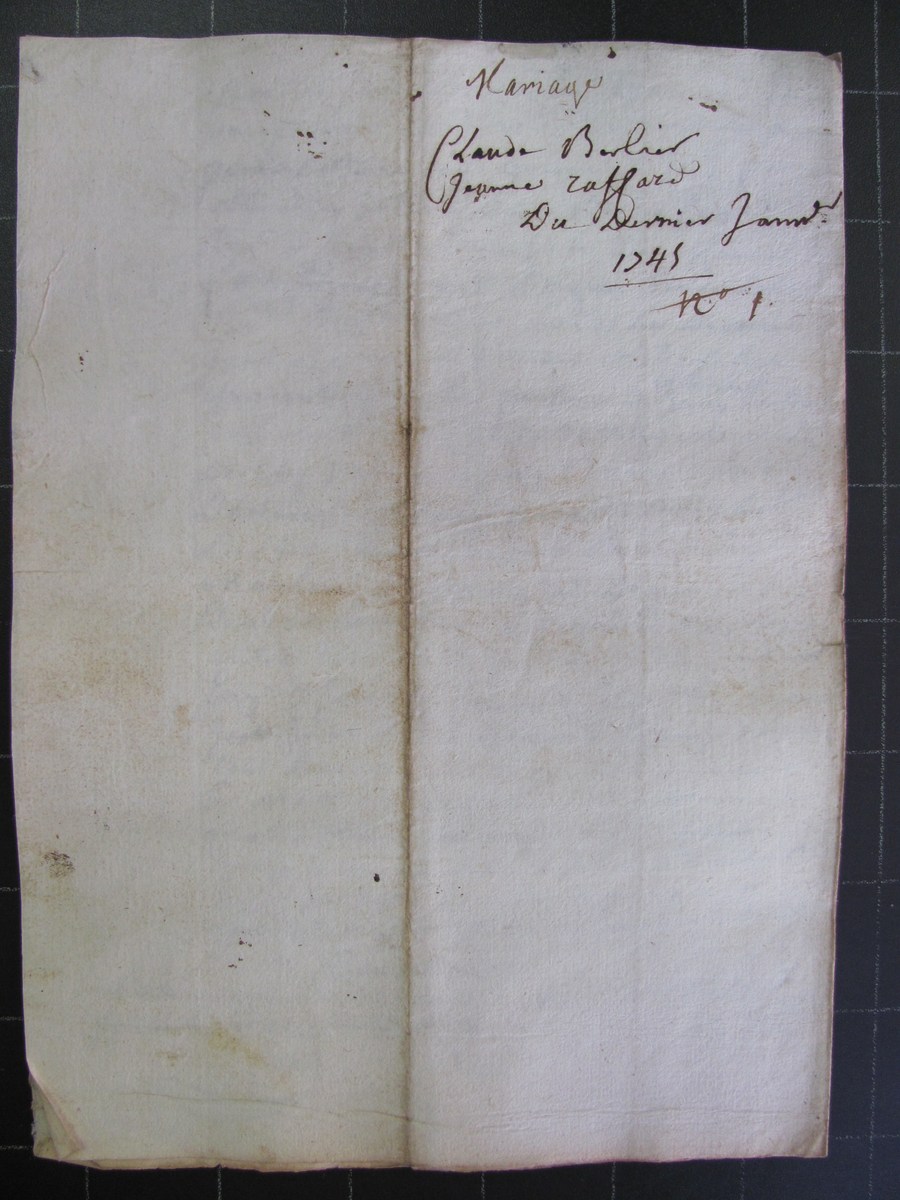 Mariage
Claude Berlier
Jeanne raffard
Du Dernier Janv.er
1745
N.o 1.